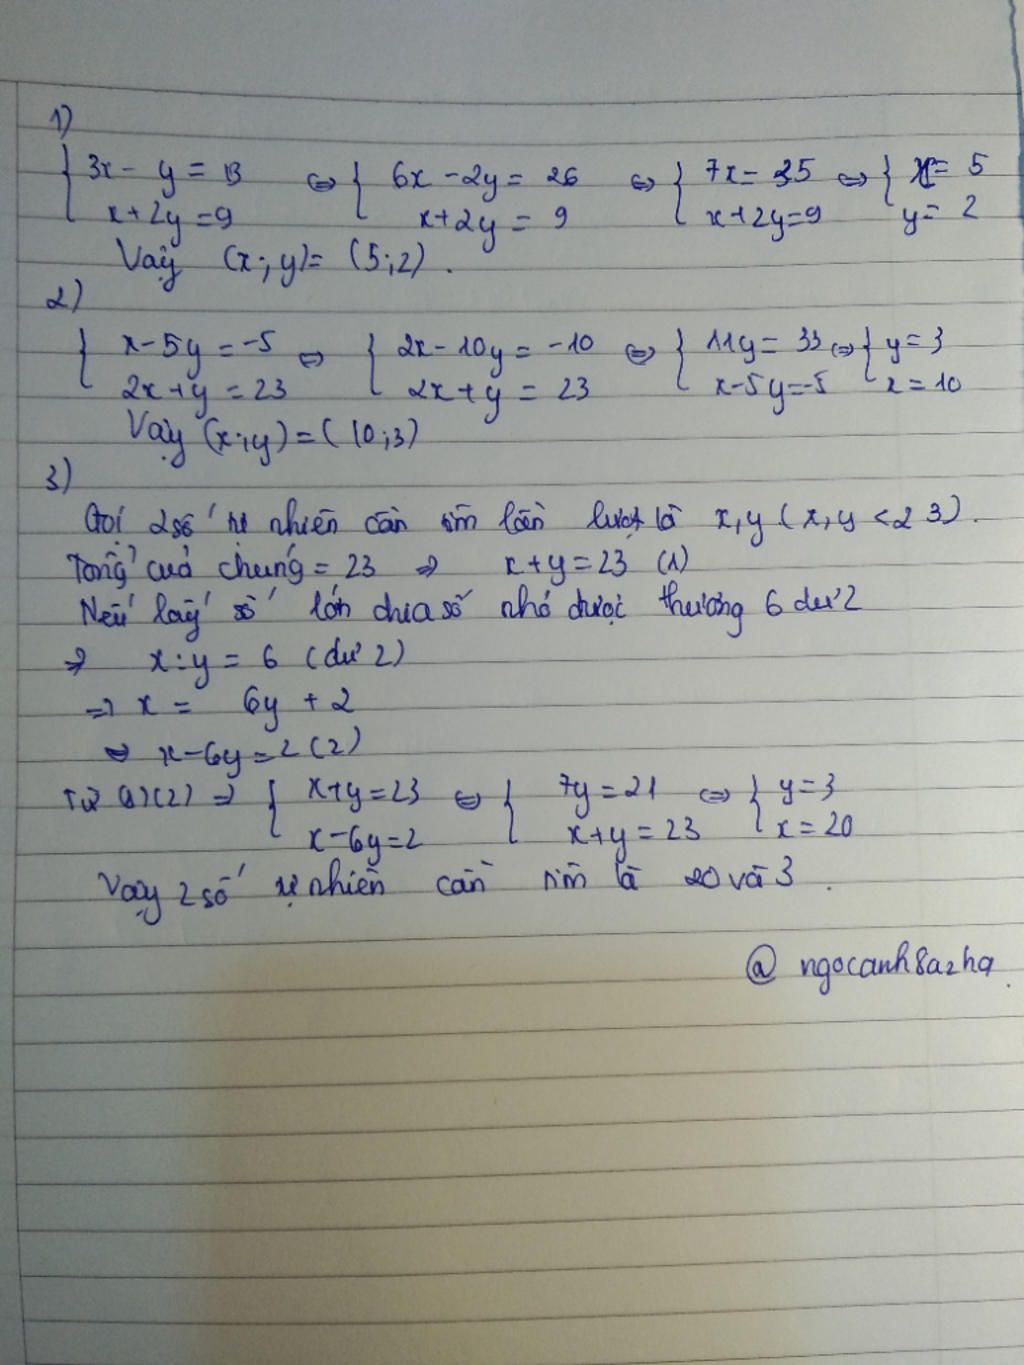 1)
{ 3x - y = 13 ⇔ { 6x - 2y = 26 ⇔ { 7x = 35 ⇔ { x = 5
x + 2y = 9 x + 2y = 9 x + 2y = 9 y = 2
Vậy (x; y) = (5; 2).
2)
{ x - 5y = -5 ⇔ { 2x - 10y = -10 ⇔ { 11y = 33 ⇔ { y = 3
2x + y = 23 2x + y = 23 x - 5y = -5 x = 10
Vậy (x; y) = (10; 3)
3)
Gọi 2 số tự nhiên cần tìm lần lượt là x, y (x, y < 23).
Tổng của chúng = 23 ⇒ x + y = 23 (1)
Nếu lấy số lớn chia số nhỏ được thương 6 dư 2
⇒ x : y = 6 (dư 2)
⇒ x = 6y + 2
⇔ x - 6y = 2 (2)
Từ (1)(2) ⇒ { x + y = 23 ⇔ { 7y = 21 ⇔ { y = 3
x - 6y = 2 x + y = 23 x = 20
Vậy 2 số tự nhiên cần tìm là 20 và 3.
@ ngocanh8a2hq.